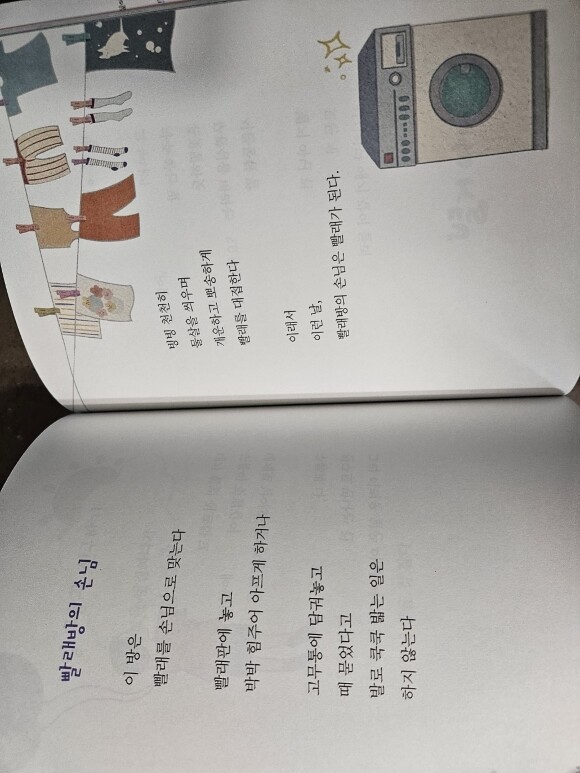 빨래방의 손님
이 방은
빨래를 손님으로 맞는다
빨래판에 놓고
박박 힘주어 아프게 하거나
고무통에 담궈놓고
때 묻었다고
발로 쿡쿡 밟는 일은
하지 않는다
빙빙 천천히
물살을 씌우며
개운하고 뽀송하게
빨래를 대접한다
이래서
이런 날,
빨래방의 손님은 빨래가 된다.